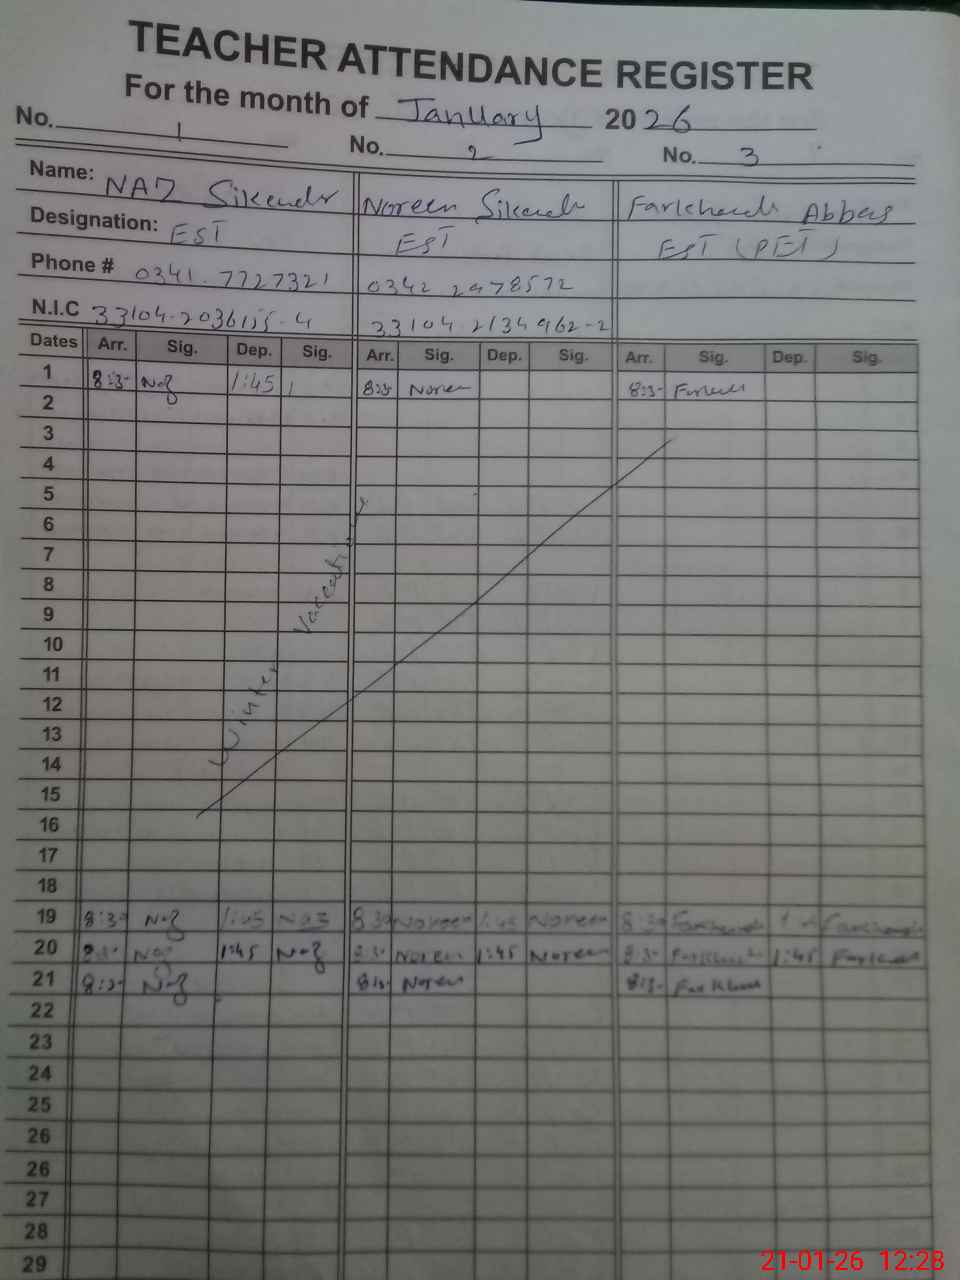 TEACHER ATTENDANCE REGISTER
For the month of January 2026
No. 1 No. 2 No. 3
Name: NAZ Sikendr Noreen Sikendr Farkhanda Abbas
Designation: EST EST EST (PET)
Phone # 0341.7727321 0342 2978572
N.I.C 33104-2036155-4 33104-2134962-2
Dates Arr. Sig. Dep. Sig. Arr. Sig. Dep. Sig. Arr. Sig. Dep. Sig.
1 8:3- Naz 1:45 8:3- Noreen 8:3-
2
3
4
5
6
7
8
9
10
11
12
13
14
15
16
17
18
Winter Vaccations
19 8:30 Naz 1:45 Naz 8:30 Noreen 1:45 Noreen 8:30 Farkhanda Farkhanda
20 8:3- Naz 1:45 Naz 8:3- Noreen 1:45 Noreen 8:3- Farkhanda 1:45
21 8:3- Naz 8:3- Noreen 8:3-
22
23
24
25
26
26
27
28
29
21-01-26 12:28